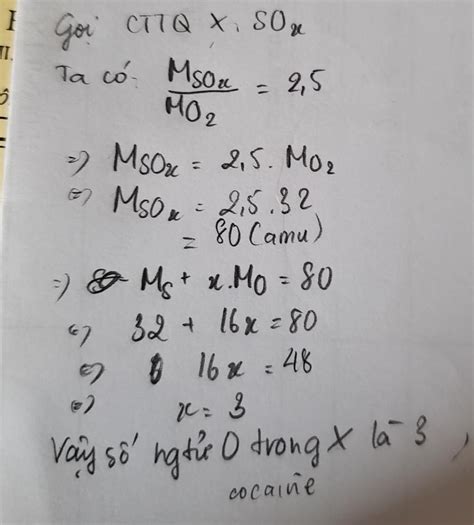 Gọi CTTQ X: SOx
Ta có: M SOx / M O2 = 2,5
=> M SOx = 2,5 . M O2
<=> M SOx = 2,5 . 32
= 80 (amu)
=> M S + x.M O = 80
<=> 32 + 16x = 80
<=> 16x = 48
<=> x = 3
Vậy số ngtử O trong X là 3,
cocaine